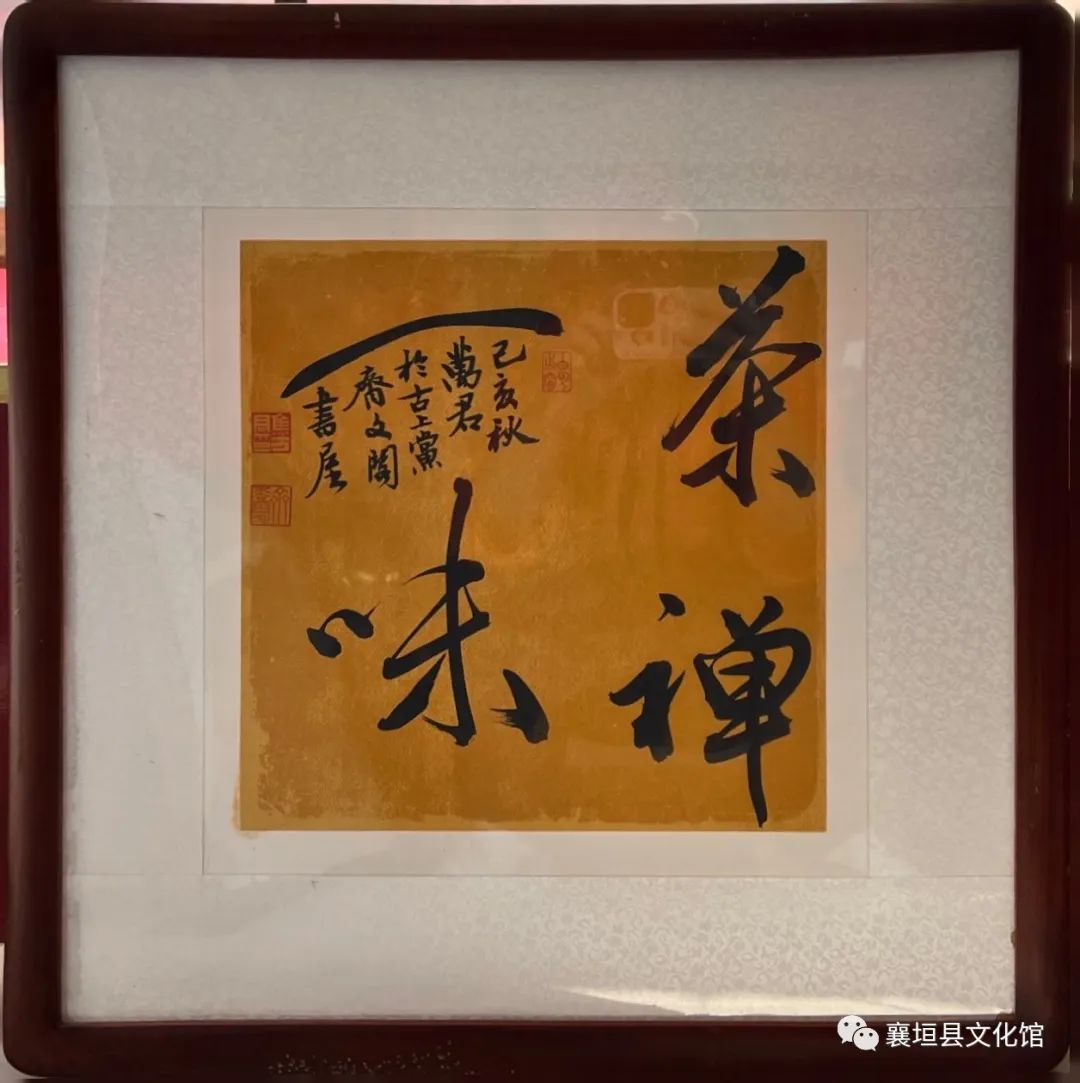 茶禅
一味
己亥秋
萬君
於古上黨
齋文閣
書居
襄垣县文化馆